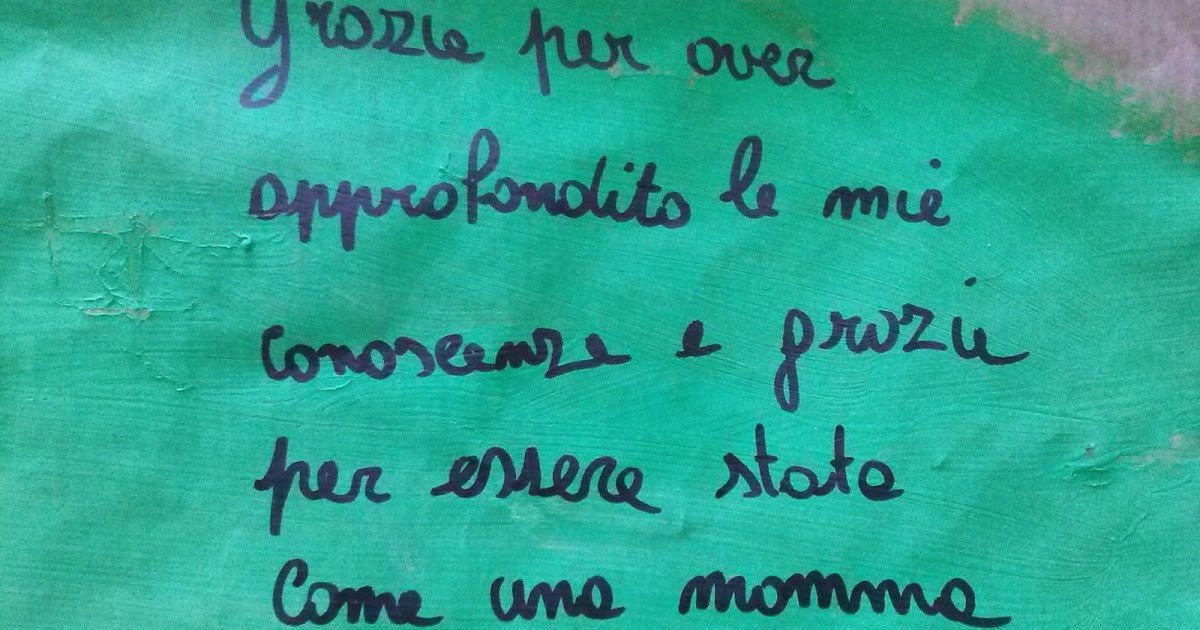 Grazie per aver
approfondito le mie
conoscenze e grazie
per essere stata
Come una mamma